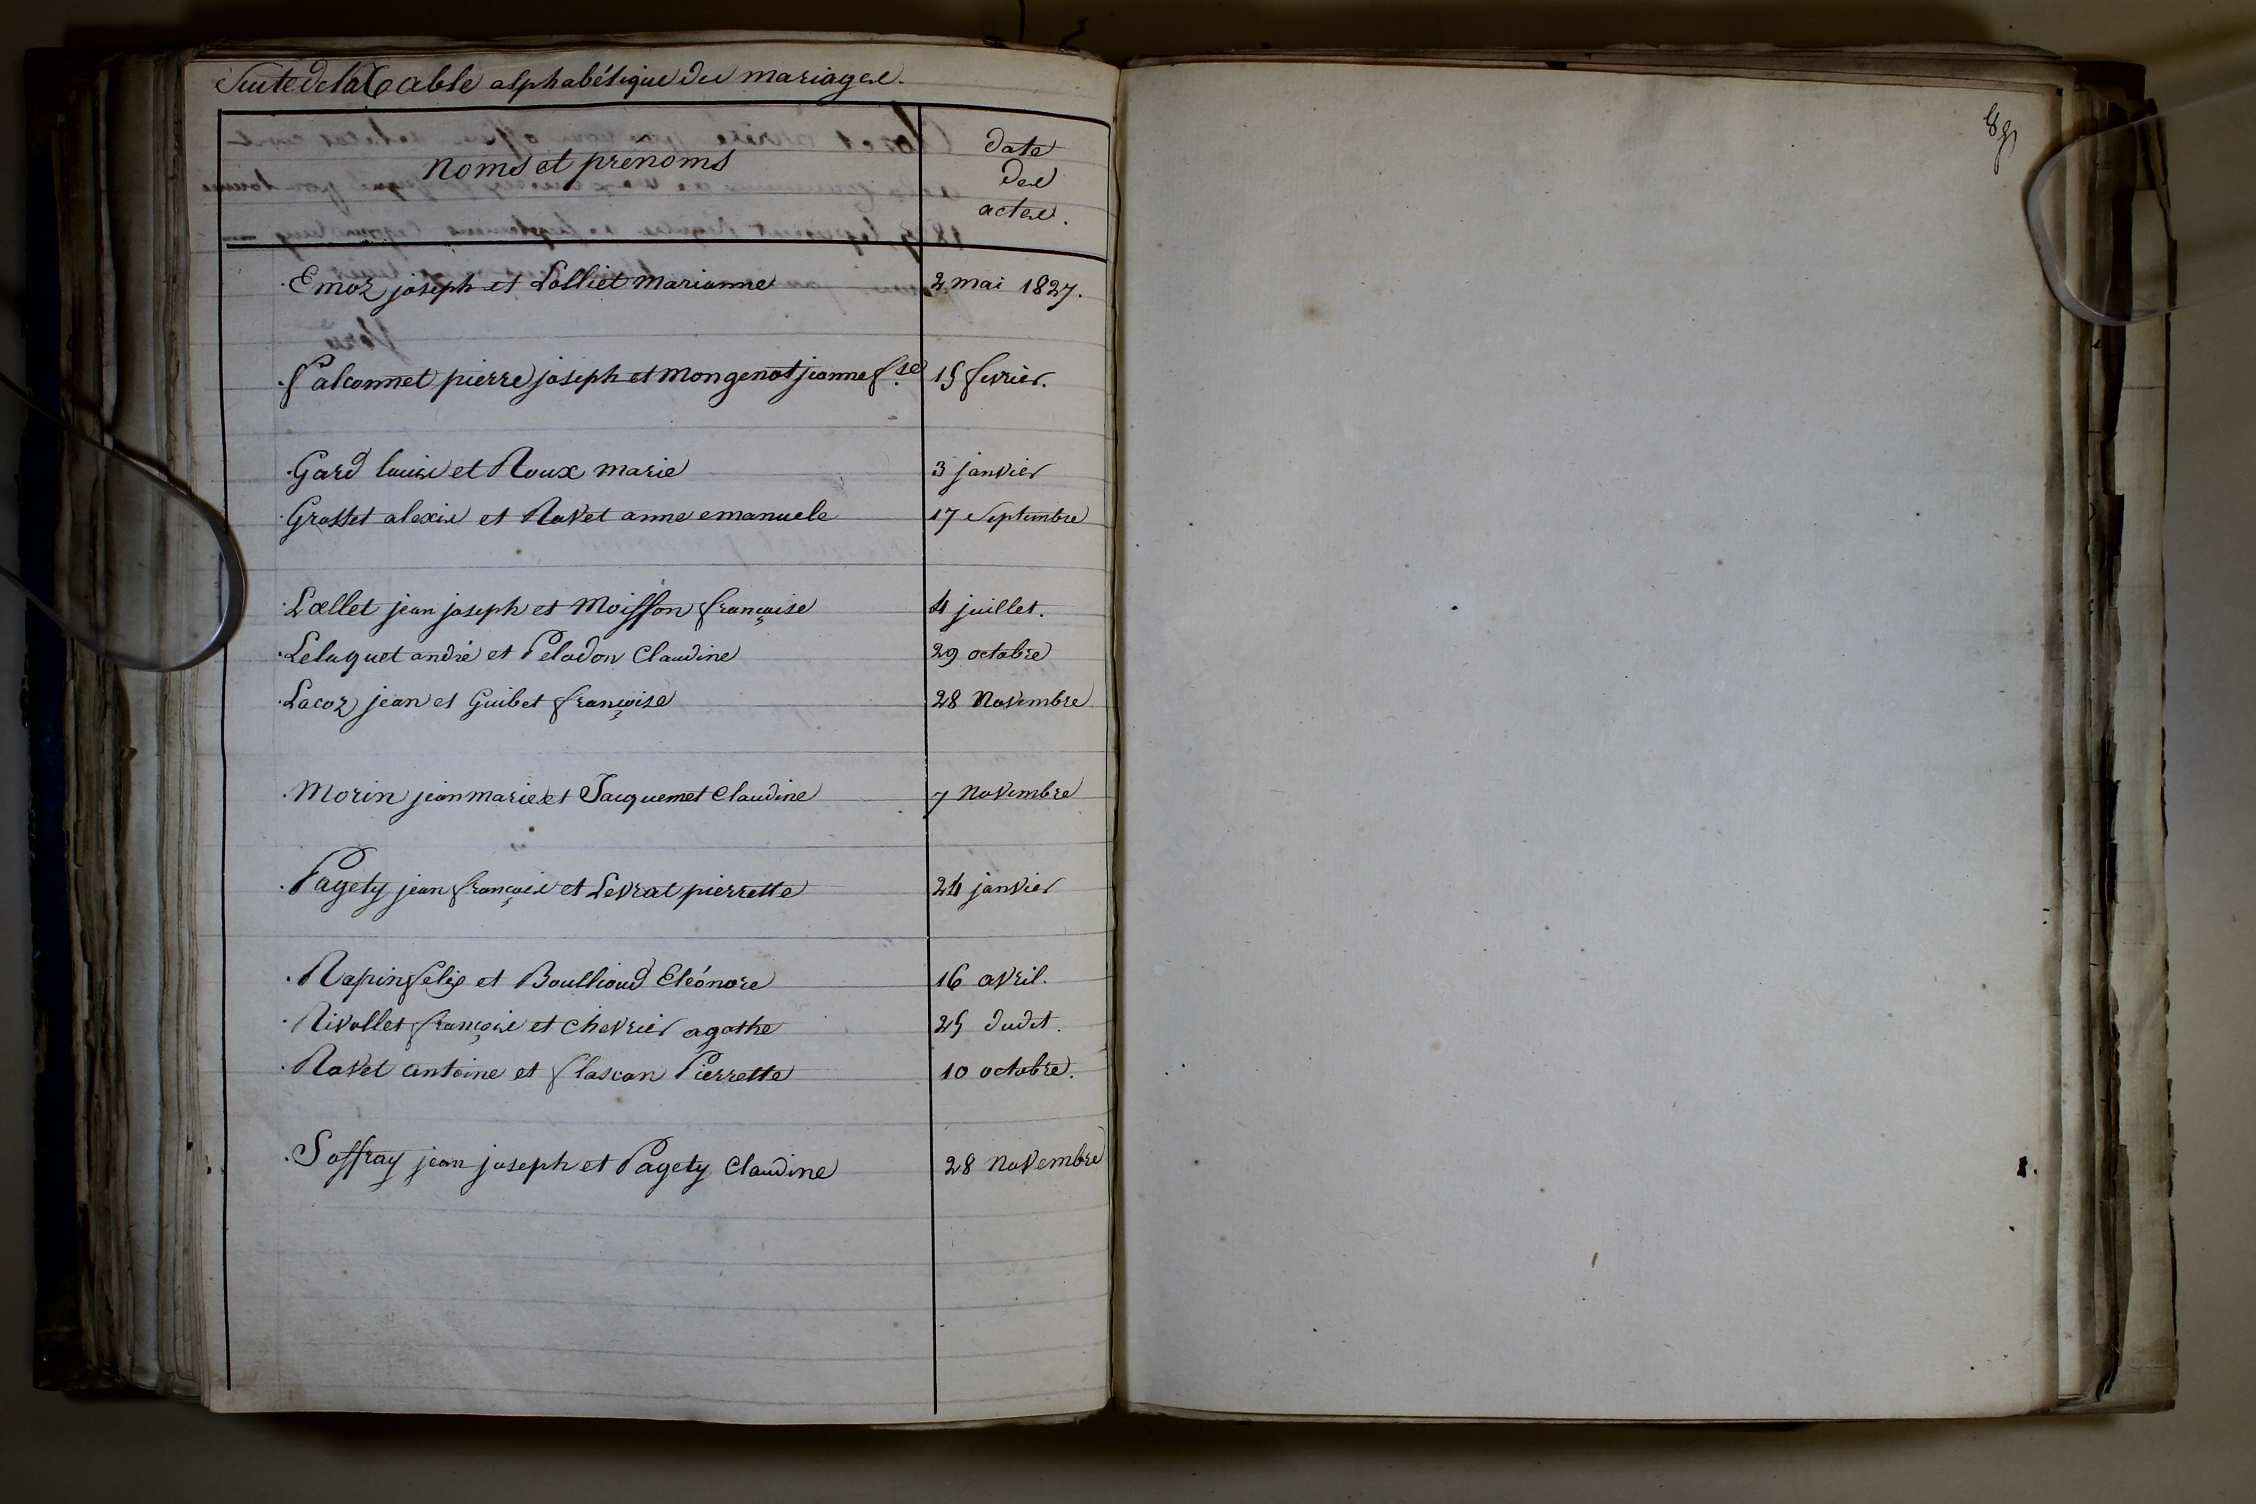 Suite de la Table alphabétique des mariages.
noms et prenoms
date
des
actes.
Emoz joseph et Lolliet marianne 2 mai 1827.
falconnet pierre joseph et mongenot jeanne fse 15 fevrier.
Gard louise et Roux marie 3 janvier
Grosset alexis et Ravet anne emanuele 17 Septembre
Lœllet jean joseph et Moisson françoise 4 juillet.
Leluquet andré et Peladon Claudine 29 octobre
Lacoz jean et Guibet françoise 28 Novembre
Morin jean marie et Jacquemet Claudine 7 Novembre
Pagety jean françois et Levrat pierrette 24 janvier
Rapin felix et Boullioud Eléonore 16 avril.
Rivollet françois et chevrier agathe 25 dudt.
Ravet antoine et flascon Pierrette 10 octobre.
Soffray jean joseph et Pagety Claudine 28 Novembre